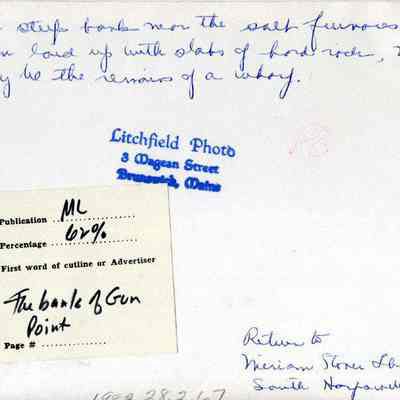 steep bank near the salt furnaces
laid up with slabs of hard rock,
be the remains of a wharf.
Litchfield Photo
3 Magean Street
Brunswick, Maine
Publication ML
Percentage 62%
First word of cutline or Advertiser
The bank of Gun
Point
Page #
Return to
Miriam Stover
South
1992.28.2.67